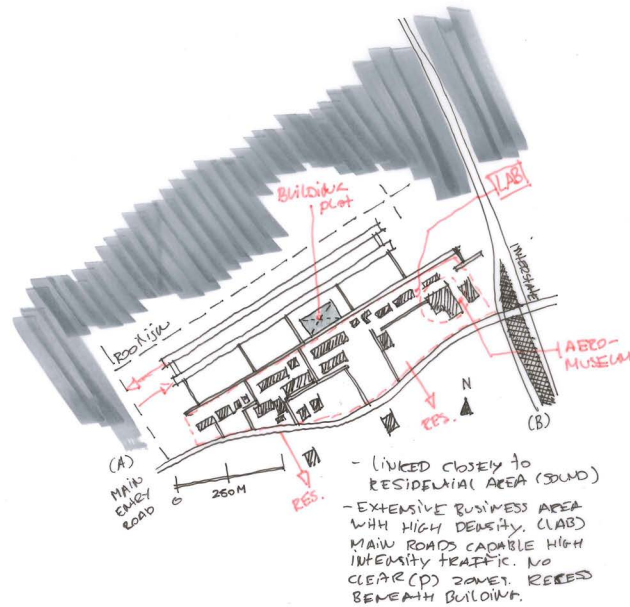 BUILDING
PLOT
LAB
INTERSTATE
AERO-
MUSEUM
N
RES.
(B)
(A)
MAIN
ENTRY
ROAD
0
250M
RES.
- LINKED CLOSELY TO
RESIDENTIAL AREA (SOUND)
- EXTENSIVE BUSINESS AREA
WITH HIGH DENSITY. (LAB)
MAIN ROADS CAPABLE HIGH
INTENSITY TRAFFIC. NO
CLEAR (P) ZONES.
BENEATH BUILDING.